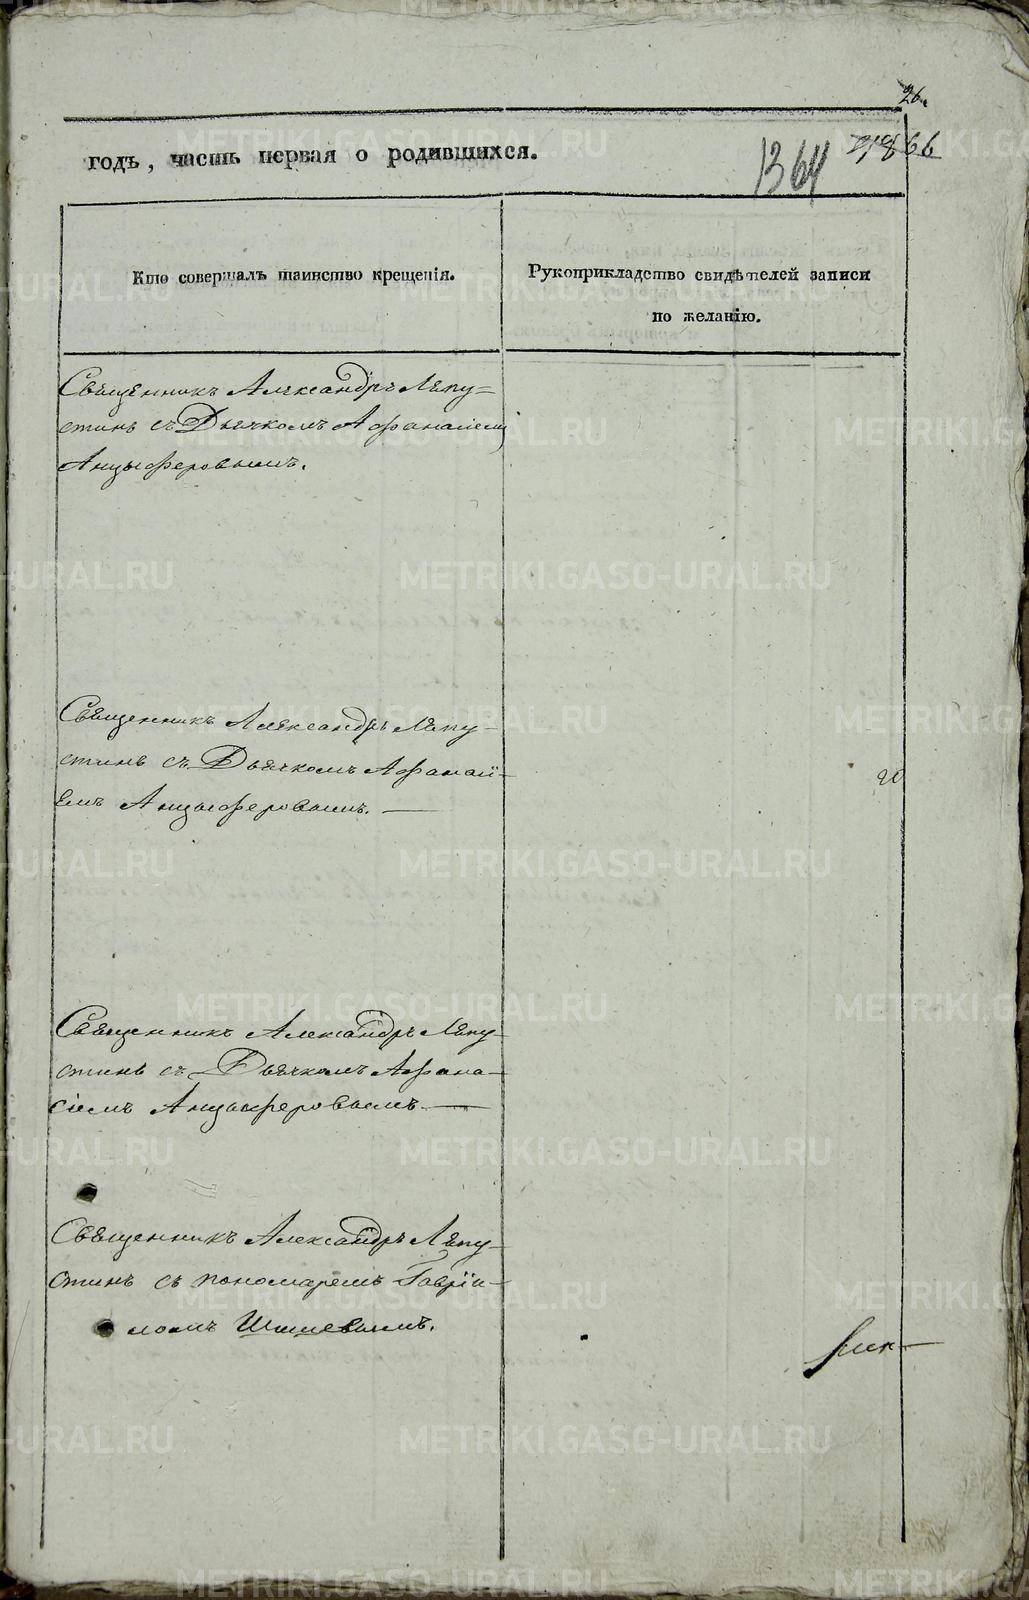 26.
годъ, часть первая о родившихся.
1364
66
Кто совершалъ таинство крещенія.
Рукоприкладство свидѣтелей записи
по желанію.
Священникъ Александръ Лапу-
стинъ съ Дьячкомъ Афанасіемъ
Анцыферовымъ.
Священникъ Александръ Лапу-
стинъ съ Дьячкомъ Афанасі-
емъ Анцыферовымъ. —
20
Священникъ Александръ Лапу-
стинъ съ Дьячкомъ Афана-
сіемъ Анцыферовымъ. —
Священникъ Александръ Лапу-
стинъ съ пономаремъ Гавріи-
ломъ Шишевымъ.
METRIKI.GASO-URAL.RU